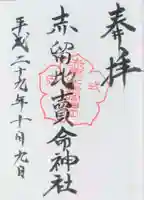 奉拝
赤留比賣命神社
平成二十九年十月九日